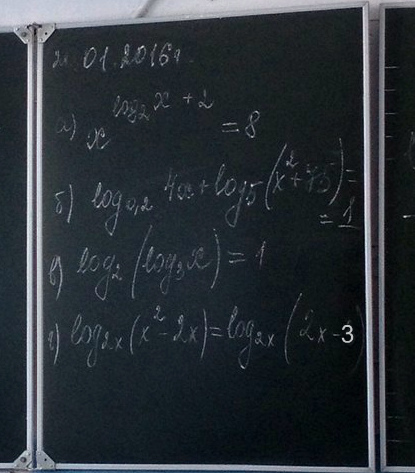 01.2016г.
а) x^(log₂x + 2) = 8
б) log₀,₂ 4x + log₅(x² + 75) =
= 1
в) log₂(log₃x) = 1
г) log₂ₓ(x² - 2x) = log₂ₓ(2x - 3)